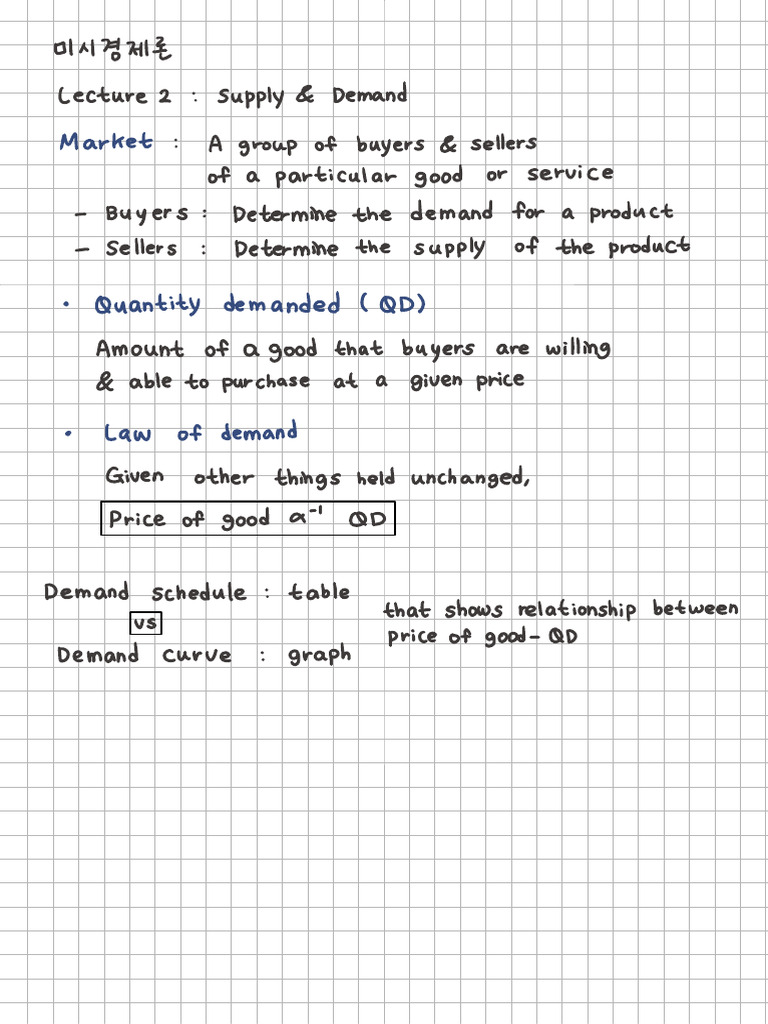 미시경제론
Lecture 2 : Supply & Demand
Market : A group of buyers & sellers
of a particular good or service
- Buyers : Determine the demand for a product
- Sellers : Determine the supply of the product
• Quantity demanded (QD)
Amount of a good that buyers are willing
& able to purchase at a given price
• Law of demand
Given other things held unchanged,
Price of good α⁻¹ QD
Demand schedule : table
vs
Demand curve : graph
that shows relationship between
price of good - QD